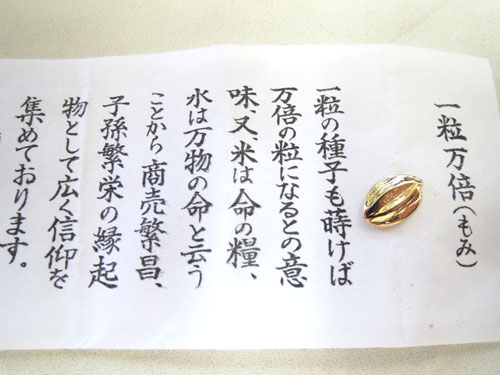 一粒万倍(もみ)
一粒の種子も蒔けば
万倍の粒になるとの意
味、又、米は命の糧、
水は万物の命と云う
ことから商売繁昌、
子孫繁栄の縁起
物として広く信仰を
集めております。